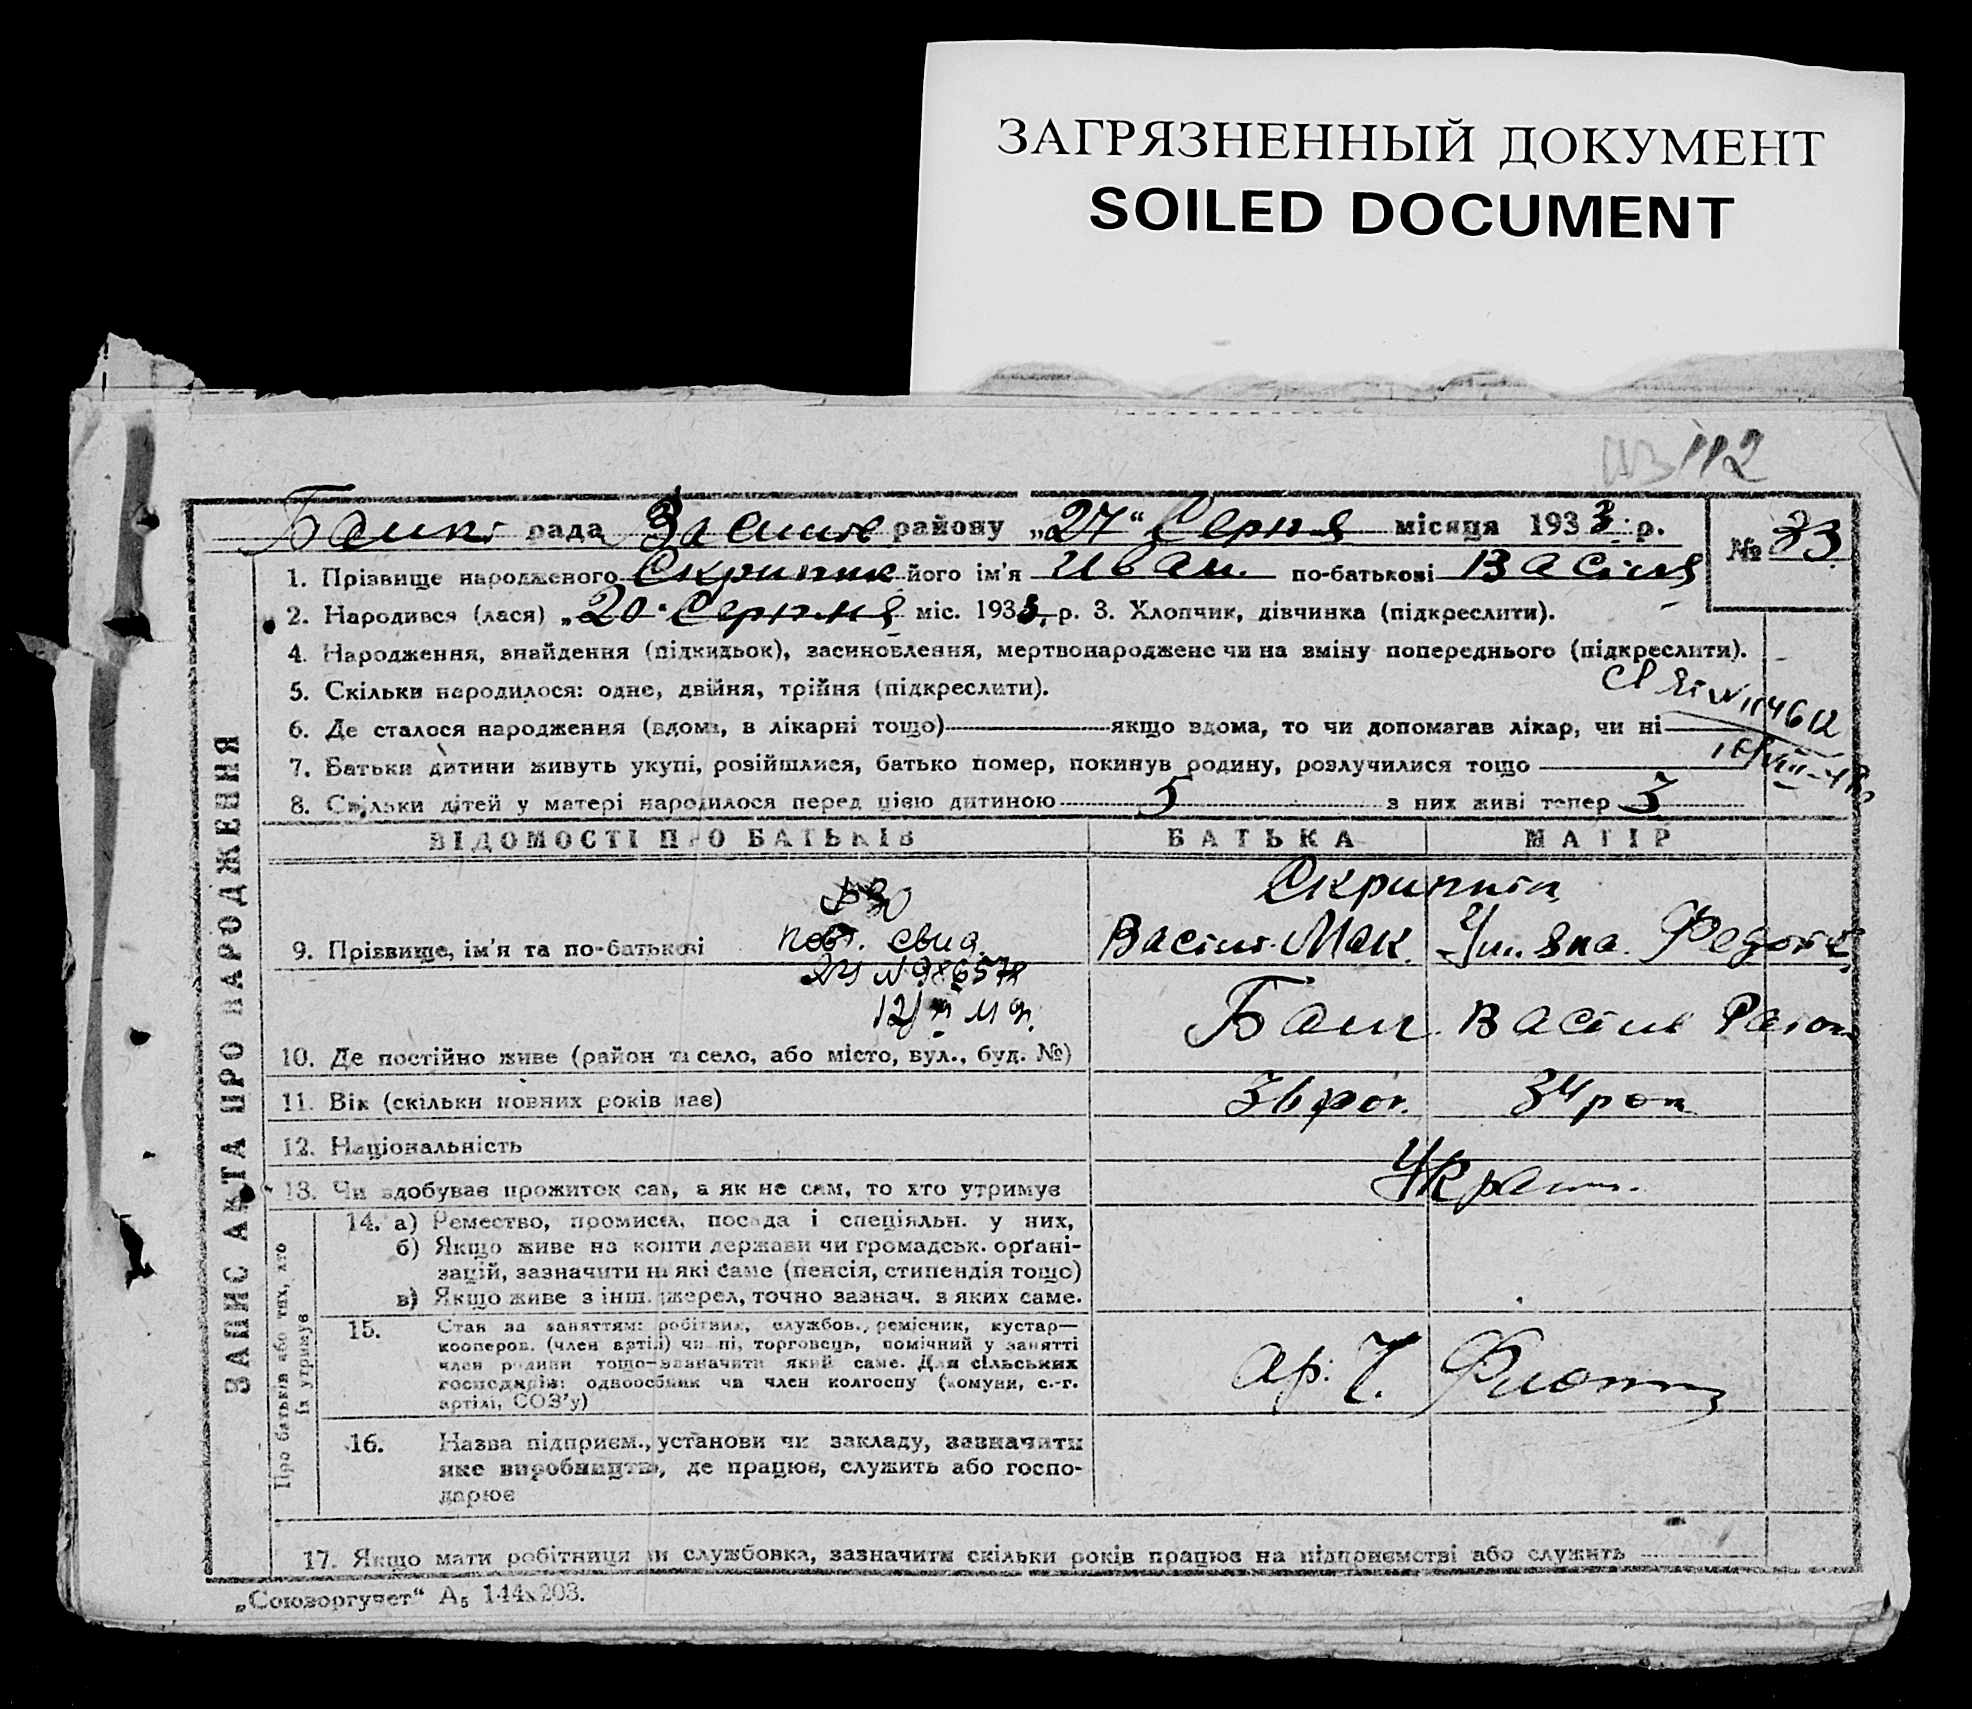 ЗАГРЯЗНЕННЫЙ ДОКУМЕНТ
SOILED DOCUMENT
112
рада районy „27“ Серпня місяця 1933 р. № 33
1. Прізвище народженого Скрипник його ім'я Иван. по-батькові Васіля
2. Народився (лася) „20“ Серпня міс. 1933 р. 3. Хлопчик, дівчинка (підкреслити).
4. Народження, знайдення (підкидьок), засиновлення, мертвонароджене чи на зміну попереднього (підкреслити).
5. Скільки народилося: одне, двійня, трійня (підкреслити).
6. Де сталося народження (вдома, в лікарні тощо) якщо вдома, то чи допомагав лікар, чи ні
7. Батьки дитини живуть укупі, розійшлися, батько помер, покинув родину, розлучилися тощо
8. Скільки дітей у матері народилося перед цією дитиною 5 з них живі тепер 3
ЗАПИС АКТА ПРО НАРОДЖЕННЯ
ВІДОМОСТІ ПРО БАТЬКІВ БАТЬКА МАТІР
Повт. свид.
9. Прізвище, ім'я та по-батькові Васіль Мак.
10. Де постійно живе (район та село, або місто, вул., буд. №)
11. Вік (скільки повних років має) 36 рок. 34 рок
12. Національність Украин.
13. Чи здобуває прожиток сам, а як не сам, то хто утримує
Про батьків або тих, хто їх утримує
14. а) Ремество, промисел, посада і спеціяльн. у них,
б) Якщо живе на кошти держави чи громадськ. орґані-
зацій, зазначити на які саме (пенсія, стипендія тощо)
в) Якщо живе з інш. джерел, точно зазнач. з яких саме.
15. Стан за заняттям: робітник, службов., ремісник, кустар—
кооперов. (член артілі) чи ні, торговець, помічний у занятті
член родини тощо—зазначити який саме. Для сільських
господарів: одноосібник чи член колгоспу (комуни, с.-г.
артілі, СОЗ'у)
16. Назва підприєм., установи чи закладу, зазначити
яке виробництво, де працює, служить або госпо-
дарює
17. Якщо мати робітниця чи службовка, зазначити скільки років працює на підприємстві або служить
„Союзоргучет“ А₅ 144x203.